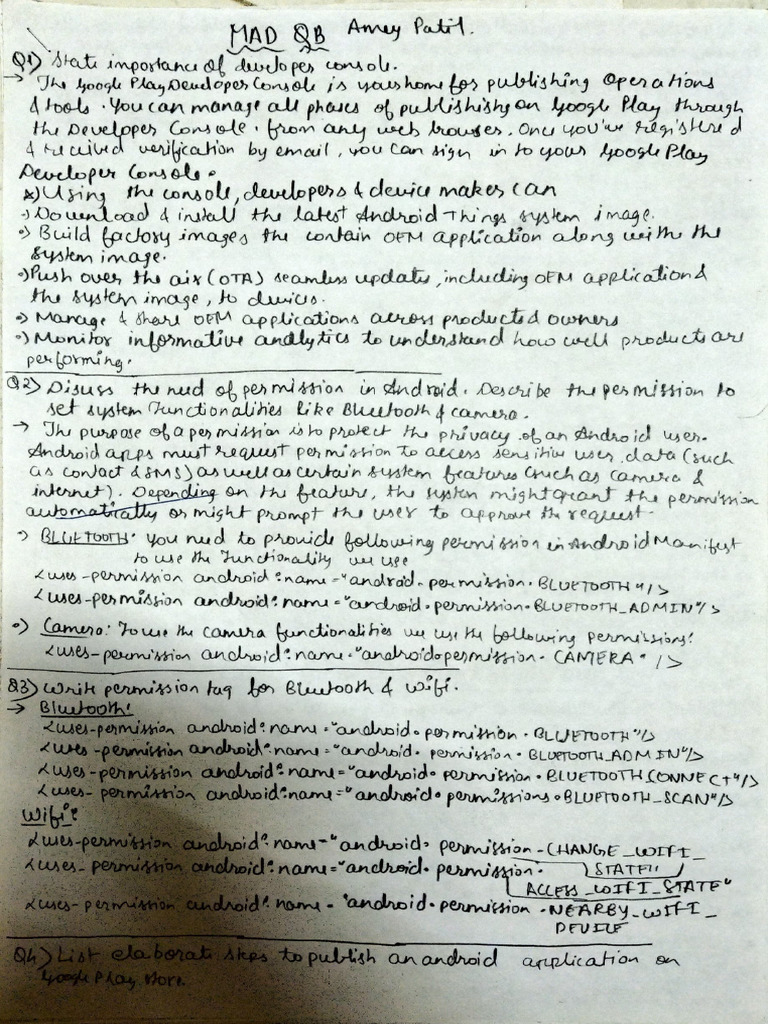 MAD QB Amey Patil.
Q1) State importance of developer console.
→ The Google Play Developer Console is your home for publishing operations
& tools. You can manage all phases of publishing on Google Play through
the Developer Console. from any web browser. Once you've registered
& received verification by email, you can sign in to your Google Play
Developer Console.
*) Using the console, developers & device makers can
•) Download & install the latest Android Things system image.
•) Build factory images the contain OEM application along with the
system image.
•) Push over the air (OTA) seamless updates, including OEM application &
the system image, to devices.
•) Manage & share OEM applications across products & owners
•) Monitor informative analytics to understand how well products are
performing.
Q2) Discuss the need of permission in Android. Describe the permission to
set system functionalities like Bluetooth & camera.
→ The purpose of a permission is to protect the privacy of an Android user.
Android apps must request permission to access sensitive user data (such
as contact & SMS) as well as certain system features (such as camera &
internet). Depending on the feature, the system might grant the permission
automatically or might prompt the user to approve the request.
•) BLUETOOTH: You need to provide following permission in Android Manifest
to use the functionality we use
<uses-permission android:name="android.permission.BLUETOOTH"/>
<uses-permission android:name="android.permission.BLUETOOTH_ADMIN"/>
•) Camera: To use the camera functionalities we use the following permissions:
<uses-permission android:name="android.permission.CAMERA" />
Q3) Write permission tag for Bluetooth & wifi.
→ Bluetooth:
<uses-permission android:name="android.permission.BLUETOOTH"/>
<uses-permission android:name="android.permission.BLUETOOTH_ADMIN"/>
<uses-permission android:name="android.permission.BLUETOOTH_CONNECT"/>
<uses-permission android:name="android.permissions.BLUETOOTH_SCAN"/>
Wifi:
<uses-permission android:name="android.permission.CHANGE_WIFI_
STATE"
<uses-permission android:name="android.permission.
ACCESS_WIFI_STATE"
<uses-permission android:name="android.permission.NEARBY_WIFI_
DEVICE
Q4) List elaborate steps to publish an android application on
Google Play store.